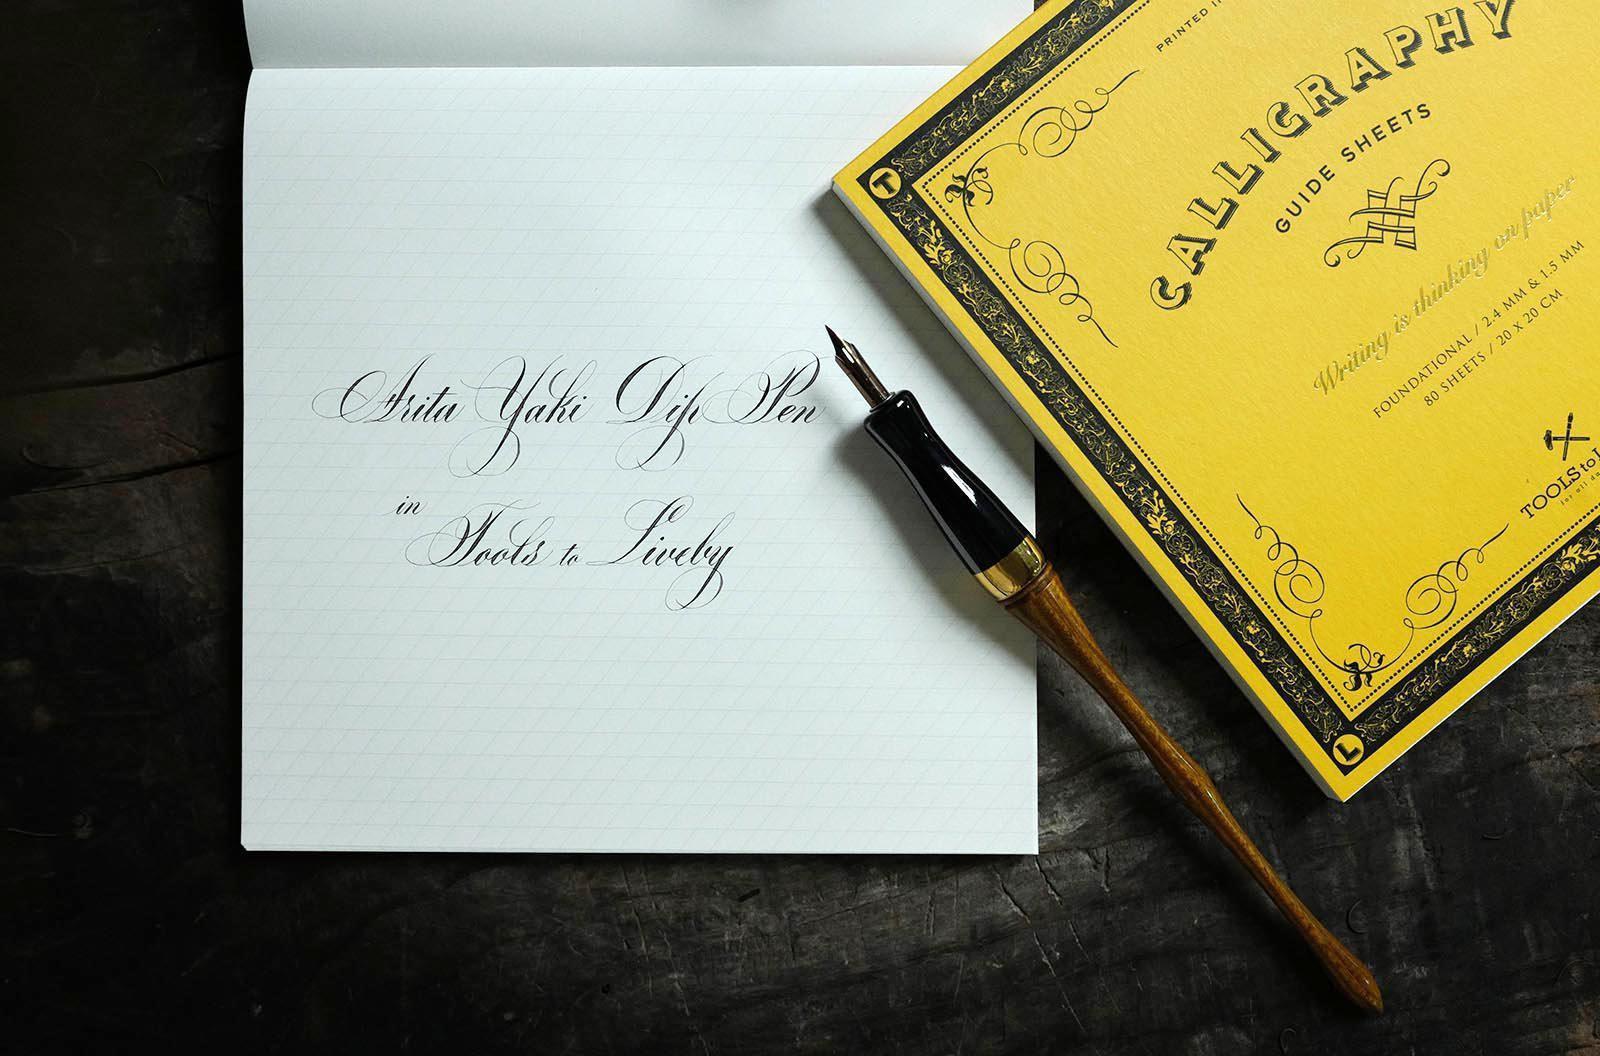 Arita Yaki Dip Pen
in
Tools to Liveby
PRINTED I
CALLIGRAPHY
GUIDE SHEETS
Writing is thinking on paper
FOUNDATIONAL / 2.4 MM & 1.5 MM
80 SHEETS / 20 x 20 CM
TOOLStoL
for all da
T
L